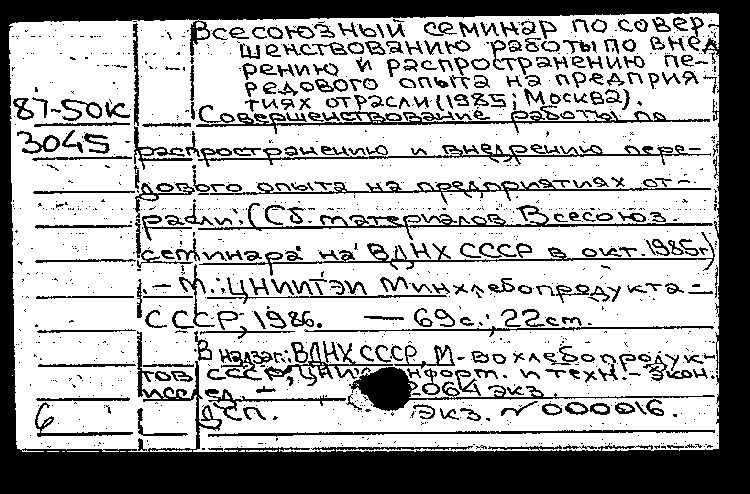 Всесоюзный семинар по совер-
шенствованию работы по внед
рению и распространению пе-
редового опыта на предприя-
тиях отрасли (1985; Москва).
87-50к
Совершенствование работы по
3045
распространению и внедрению пере-
дового опыта на предприятиях от-
расли: (Сб. материалов Всесоюз.
семинара на ВДНХ СССР в окт. 1985г)
. – М.: ЦНИИТЭИ Минхлебопродукта –
СССР, 1986. — 69с.; 22см.
В надзаг.: ВДНХ СССР, М-во хлебопродук-
тов СССР, ЦНИИ информ. и техн.-экон.
исслед. – 2064 экз.
6 ДСП. Экз. № 000016.